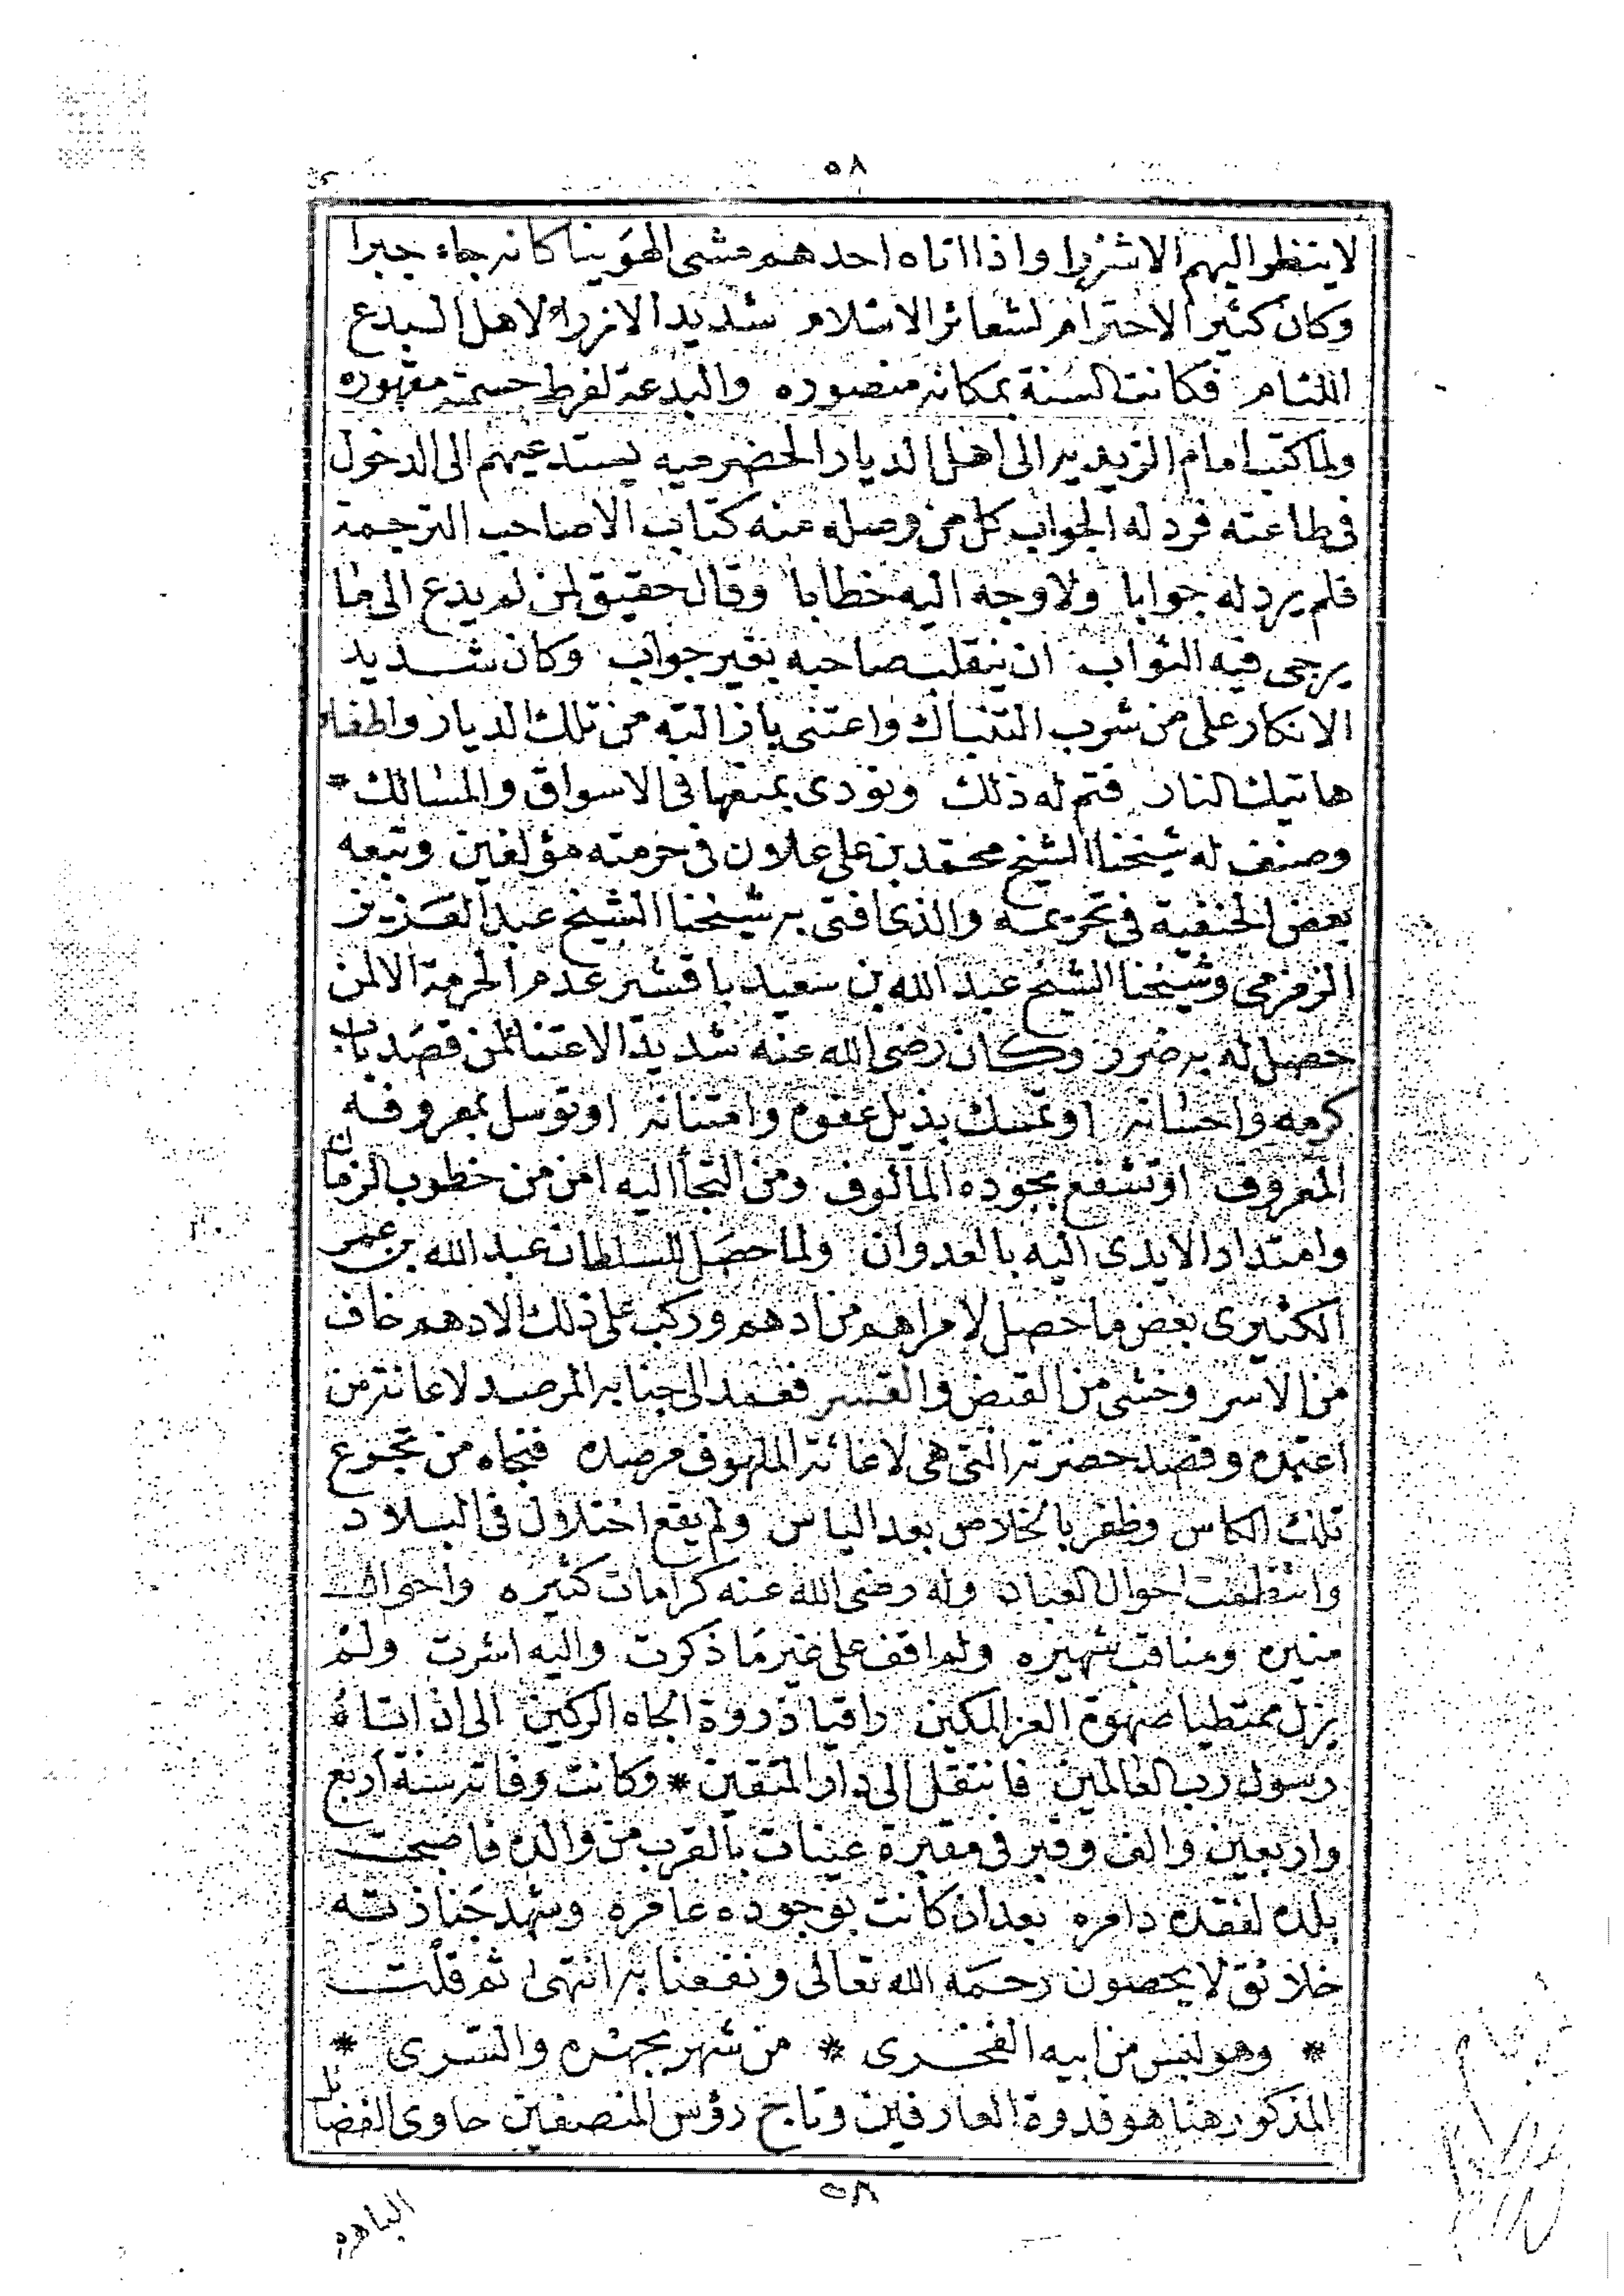 ٥٨
لا ينظر اليهم الا شزرا واذا اتاه احدهم مشى الهوينا كانه جاء جبرا
وكان كثير الاحترام لشعائر الاسلام شديد الازراء لاهل البدع
اللئام فكانت السنة بمكانه منصوره والبدعة لفرط حسمه مقهوره
ولما كتب امام الزيديه الى اهل الديار الحضرميه يستدعيهم الى الدخول
في طاعته فرد له الجواب كل من وصله منه كتاب الا صاحب الترجمة
فلم يرد له جوابا ولا وجه اليه خطابا وقال حقيق لمن لم يدع الى ما
يرجى فيه الثواب ان ينقلب صاحبه بغير جواب وكان شديد
الانكار على من شرب التنباك واعتنى بازالته من تلك الديار واطفاء
هاتيك النار فتم له ذلك ونودى بمنعها في الاسواق والمسالك
وصنف له شيخنا الشيخ محمد بن على علان في حرمته مؤلفين وتبعه
بعض الحنفية في تحريمه والذي افتى به شيخنا الشيخ عبد العزيز
الزمزمى وشيخنا الشيخ عبد الله بن سعيد باقشير عدم الحرمة الا لمن
حصل له به ضرر وكان رضى الله عنه شديد الاعتنا لمن قصد باب
كرمه واحسانه او تمسك بذيل عفوه وامتنانه او توسل بمعروفه
المعروف او تشفع بجوده المألوف ومن التجأ اليه امن من خطوب الزمان
وامتداد الايدى اليه بالعدوان ولما حصل للسلطان عبد الله بن عمر
الكثيرى بعض ما حصل لابراهيم من ادهم وركب على ذلك الادهم خاف
من الاسر وخشى من القبض والقسر فعمد الى جنابه المرصد لاعانة من
اعتمده وقصد حضرته التى هى لاغاثة الملهوف مرصده فنجاه من تجرع
تلك الكاس وظفر بالخلاص بعد الياس ولم يقع اختلال في البلاد
وانتظمت احوال العباد وله رضى الله عنه كرامات كثيره واحوال
منيره ومناقب شهيره ولم اقف على غير ما ذكرت واليه اشرت ولم
يزل ممتطيا صهوة العز المكين راقيا ذروة الجاه الركين الى ان اتاه
رسول رب العالمين فانتقل الى دار المتقين * وكانت وفاته سنة اربع
واربعين والف وقبر في مقبرة عينات بالقرب من والده فاصبحت
بلده لفقده دامره بعد ان كانت بوجوده عامره وشهد جنازته
خلائق لا يحصون رحمه الله تعالى ونفعنا به انتهى ثم قلت
* وهو لبس من ابيه الفخرى * من شهر بجهره والسرى *
المذكور هنا هو قدوة العارفين وتاج رؤس المنصفين حاوى الفضائل
٥٨
الباهره